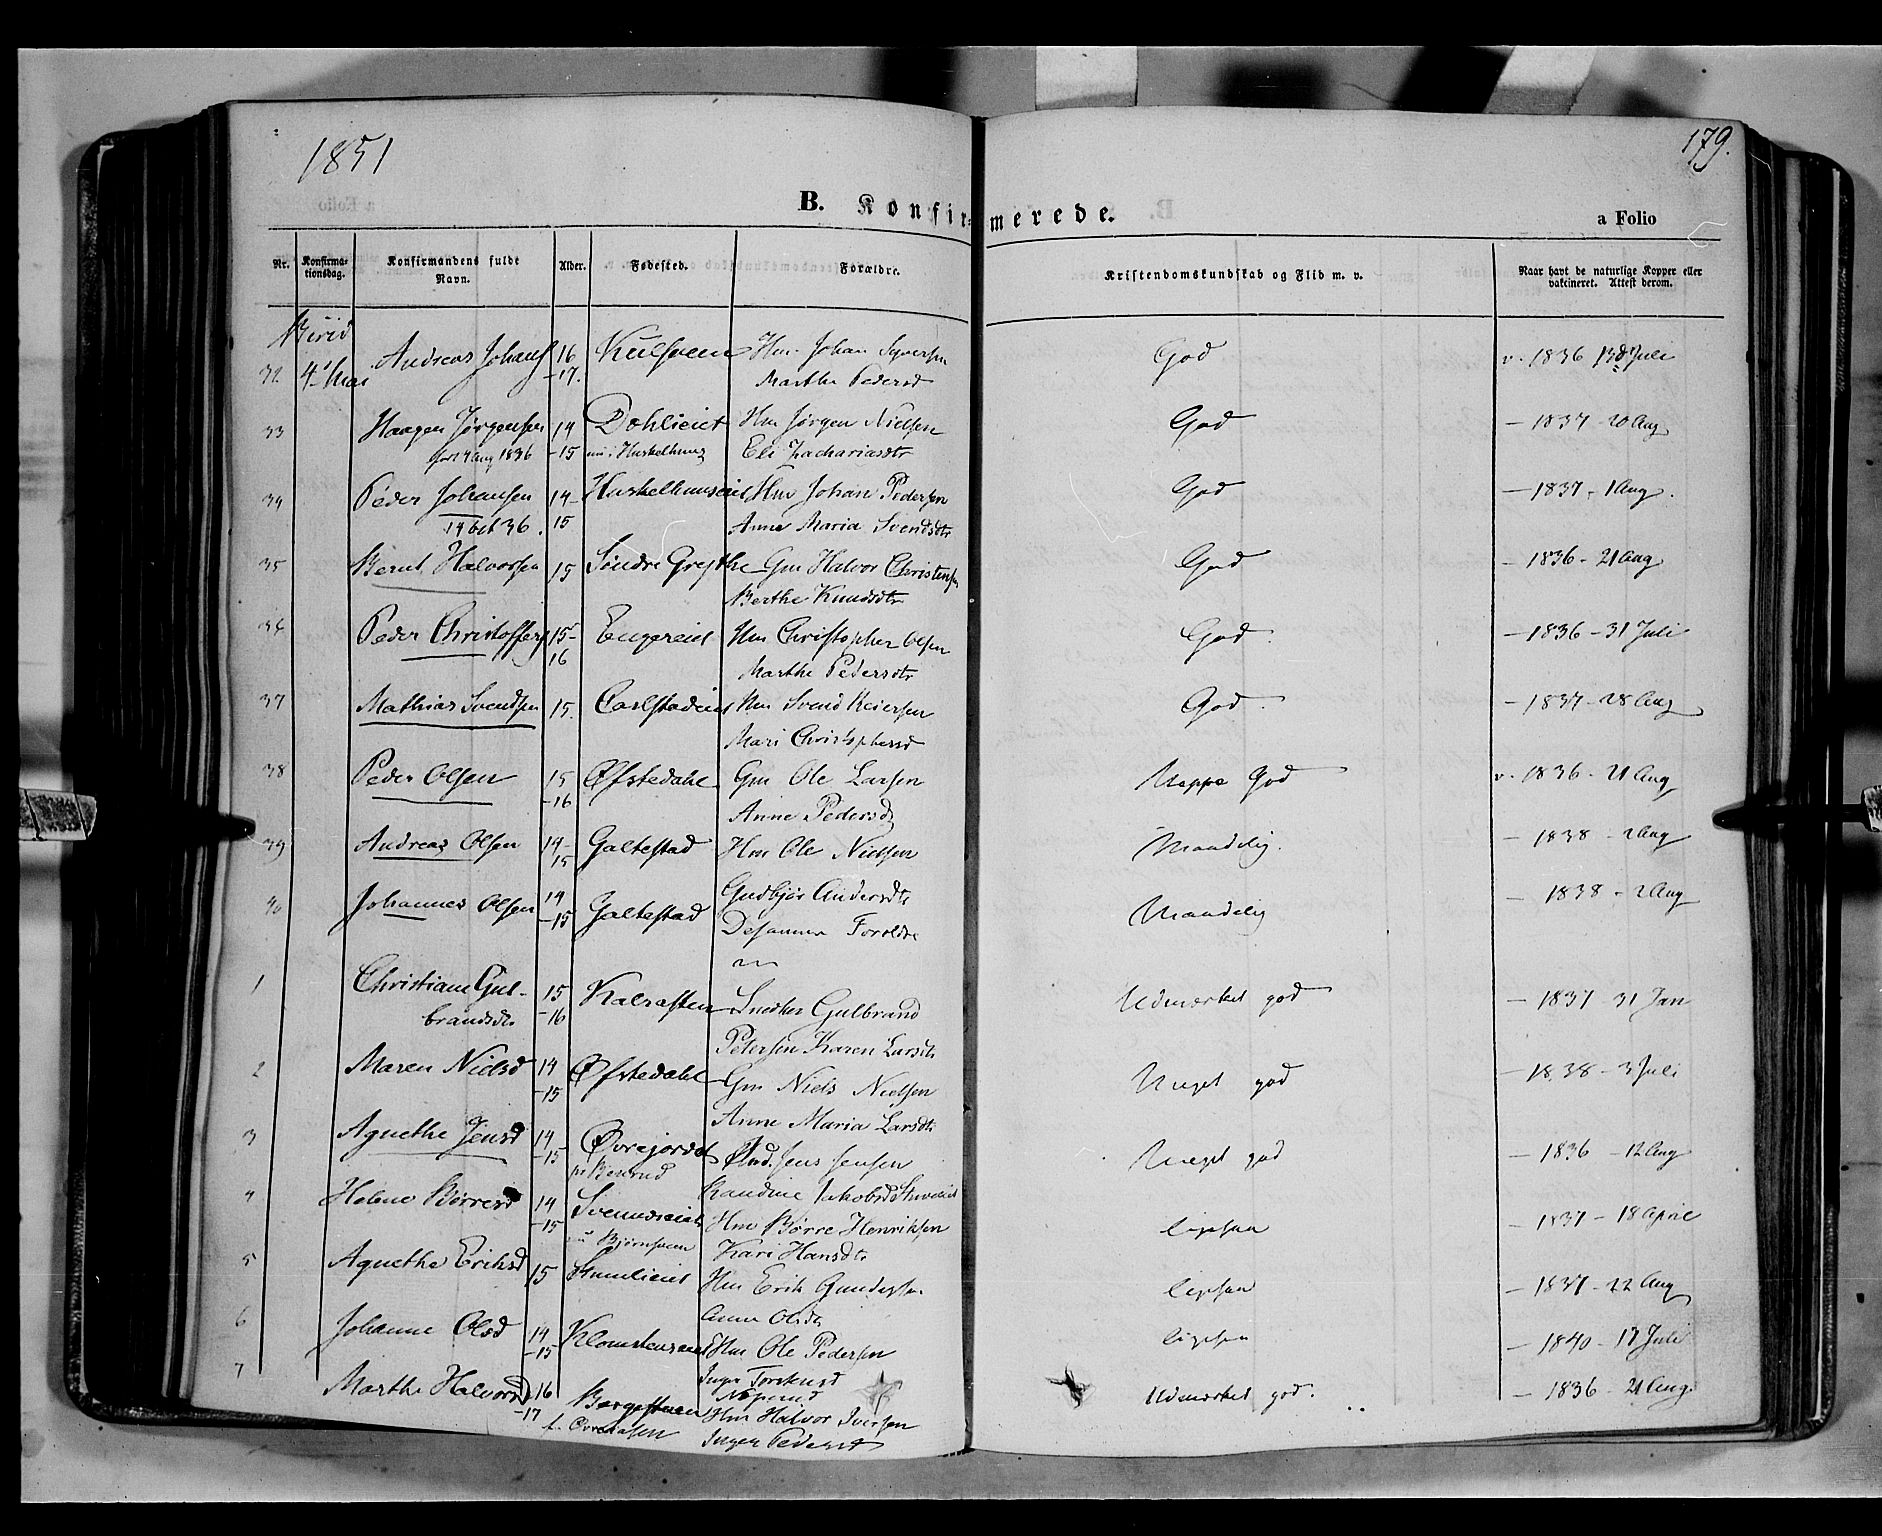 1851
179.
B. Konfirmerede.
a Folio
Nr. Konfirmationsdag. Konfirmandens fulde Navn. Alder. Fødested. Forældre. Kristendomskundskab og Flid m. v. Naar havt de naturlige Kopper eller vakcineret. Attest derom.
Birid
32 4 Mai Andreas Johans 16 Kulsveen Hm. Johan Syversen God v. 1836 13de Juli
-17. Marthe Pedersd
33 Haagen Jørgensen 14 Dohlieiet Hm Jørgen Nielsen God – 1837 – 20 Aug
født 4 Aug 1836 -15 Huskelhuus Eli Zachariasdtr
34 Peder Johansen 14- Huskelhuuseiet Hm Johan Pedersen God – 1837 – 1 Aug.
14 Oct 36. 15 Anne Maria Svendsdtr
35 Bernt Halvorsen 15 Søndre Grefthe Gm Halvor Christensen God – 1836 – 21 Aug
Berthe Knudsdtr
36 Peder Christoffers 15- Engereiet Hm Christopher Olsen God. – 1836 – 31 Juli
16 Marthe Pedersdtr
37 Mathias Svendsen 15. Carlstadeiet Hm Svend Reiersen God. – 1837 – 28 Aug
Mari Christophersd
38 Peder Olsen 15 Øfstedahl Gm Ole Larsen Neppe God v. 1836 – 21 Aug
-16 Anne Pedersd
39 Andreas Olsen 14- Galtestad Hm Ole Nielsen Maadelig. – 1838 – 2 Aug
15 Gudbjør Andersdtr
40 Johannes Olsen 14 Galtestad Desamme Foreldre Maadelig – 1838 – 2 Aug
-15
1 Christiane Gul- 15 Kalrasten Snedker Gulbrand Udmærket god – 1837 – 31 Jan
brandsdtr -16 Petersen Karen Larsdtr
2 Maren Nielsd 14 Øfstedahl Gm Niels Nielsen Meget god – 1838 – 3 Juli
-15 Anne Maria Larsdtr
3 Agnethe Jensd 14 Øvrejordet Jens Jensen Meget god – 1836 – 12 Aug
-15 Randine Jakobsd
4 Helene Børresd 14 Svenneseiet Hm Børre Henriksen ligesaa – 1837 – 18 April
-15 Bjørnsveen Kari Hansdtr
5 Agnethe Eriksd 15 Hm Erik Gundersen ligesaa – 1837 – 22 Aug
Anne Olsdtr
6 Johanne Olsd 14 Klomsteneiet Hm Ole Pedersen ligesaa – 1840 – 17 Juli
-15 Inger Torstensd
7 Marthe Halvorsd 16 Hm Halvor Iversen Udmærket god. – 1836 – 21 Aug
-17 Inger Pedersd